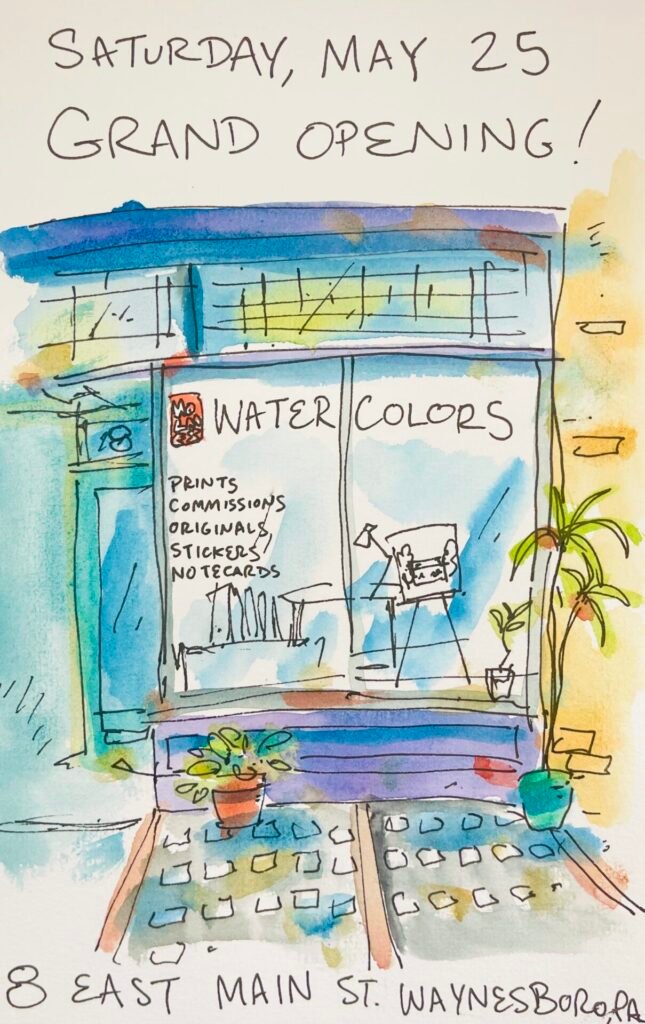 SATURDAY, MAY 25
GRAND OPENING!
WATER COLORS
8
PRINTS
COMMISSIONS
ORIGINALS
STICKERS
NOTECARDS
8 EAST MAIN ST. WAYNESBORO, PA